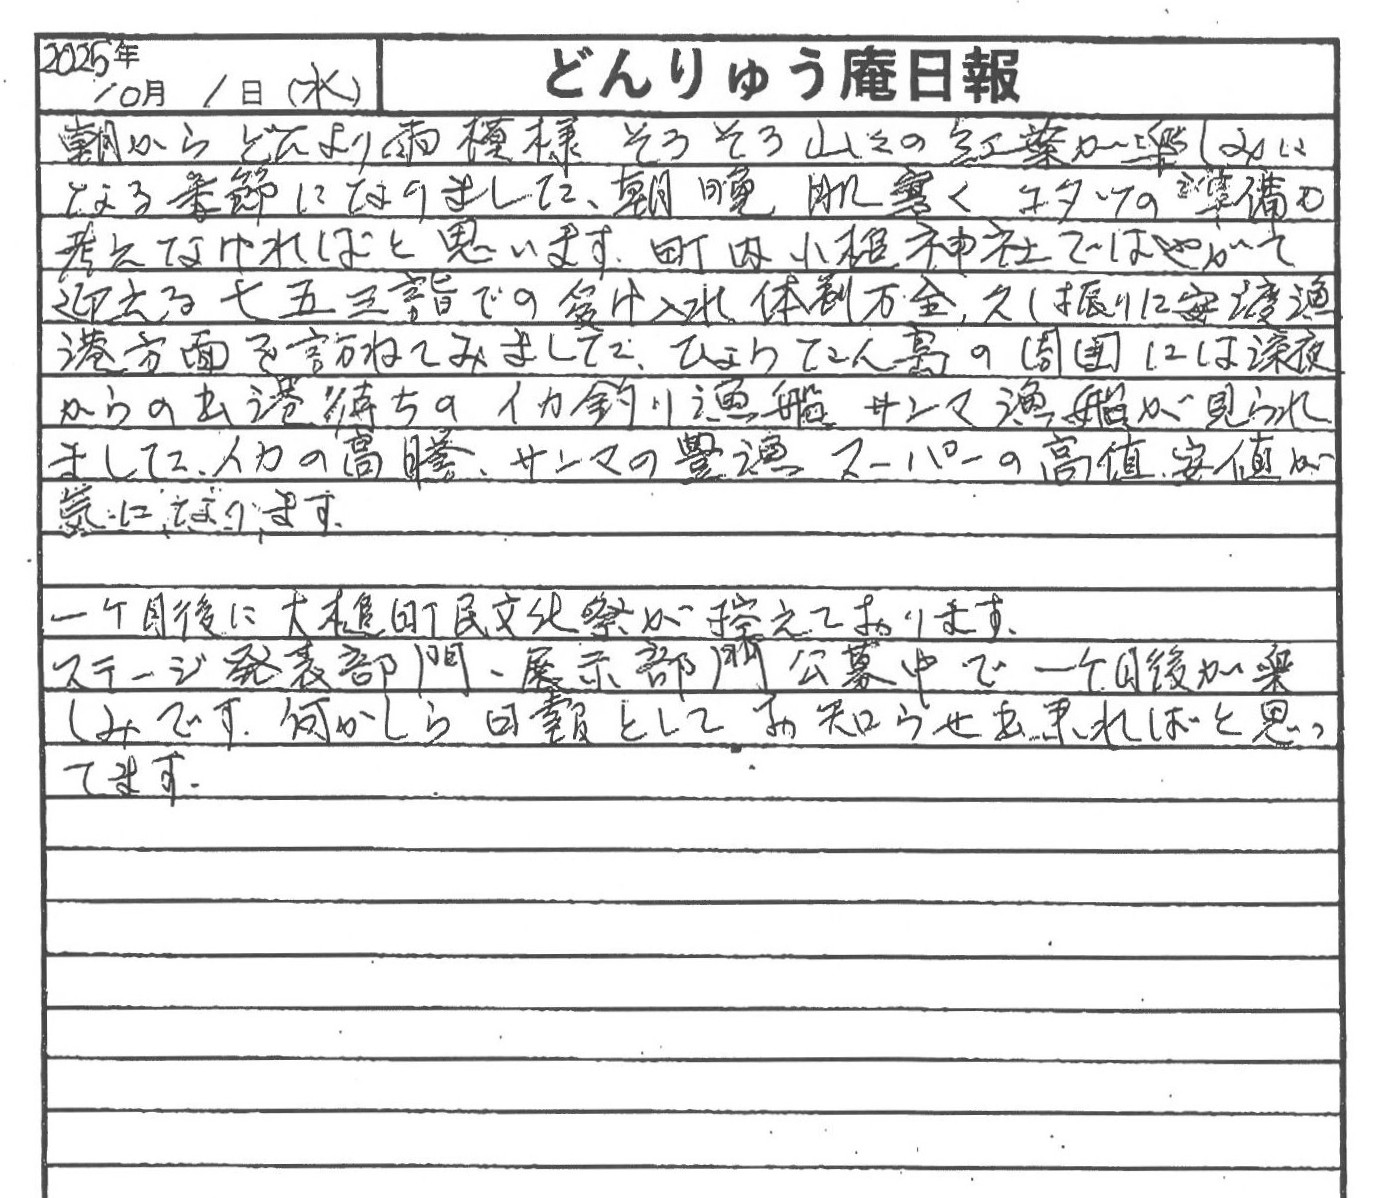 2025年
10月 1日 (水)
どんりゅう庵日報
朝からどんより雨模様 そろそろ山々の紅葉が楽しみに
なる季節になりました、朝晩 肌寒く コタツの準備も
考えなければと思います。町内小槌神社ではやがて
迎える七五三詣での受け入れ体制万全、久し振りに安渡漁
港方面を訪ねてみました、ひょうたん島の周囲には深夜
からの出港待ちのイカ釣り漁船 サンマ漁船が見られ
ました、イカの高騰、サンマの豊漁 スーパーの高値、安値が
気になります。
一ケ月後に大槌町民文化祭が控えております。
ステージ発表部門、展示部門公募中で一ケ月後が楽
しみです。何かしら日報としてお知らせ出来ればと思っ
てます。